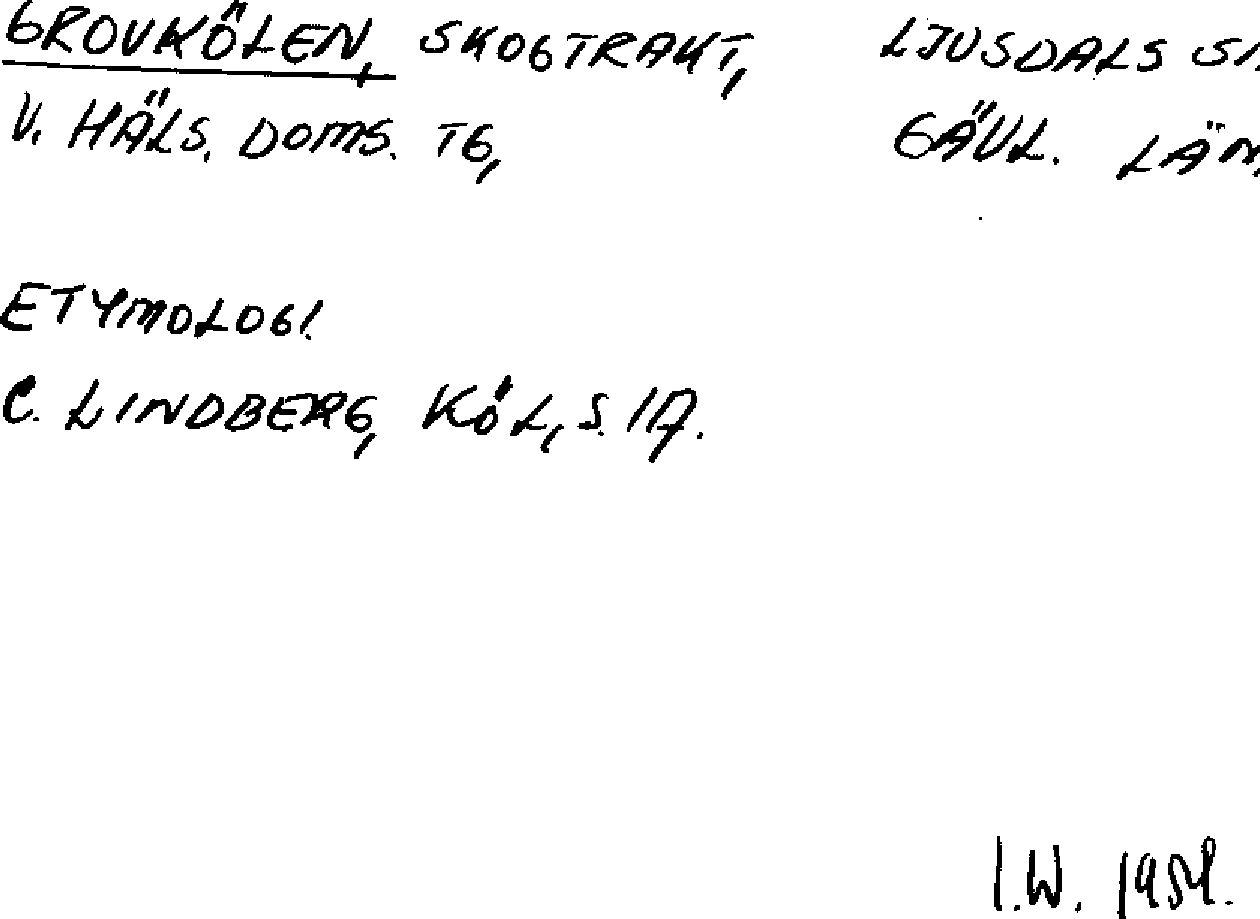 GROVKÖLEN, SKOGTRAKT, LJUSDALS SN
V. HÄLS. DOMS. TG, GÄVL. LÄN
ETYMOLOGI.
C. LINDBERG, KÖL, S. 17.
I.W. 1954.